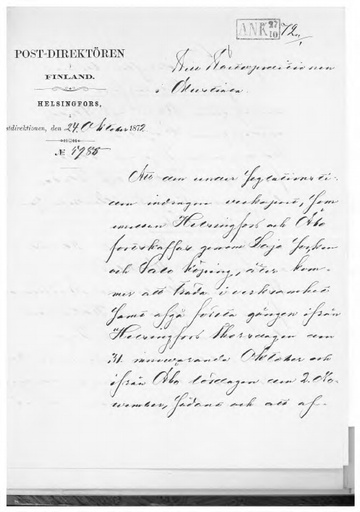 ANK 27/10 72.
POST-DIREKTÖREN
i
FINLAND.
HELSINGFORS,
å
Postdirektionen, den 24 Oktober 1872
№ 1985
Till Postexpeditionen
i
Att den under seglationsti-
den indragna postkupé, som
mellan Helsingfors och Åbo
genom Lojo socken
och Salo köping, åter kom-
mer att träda i verksamhet
samt afgå första gången ifrån
Helsingfors Thorsdagen den
31 innevarande Oktober och
ifrån Åbo lördagen den 2 No-
vember, och att af-